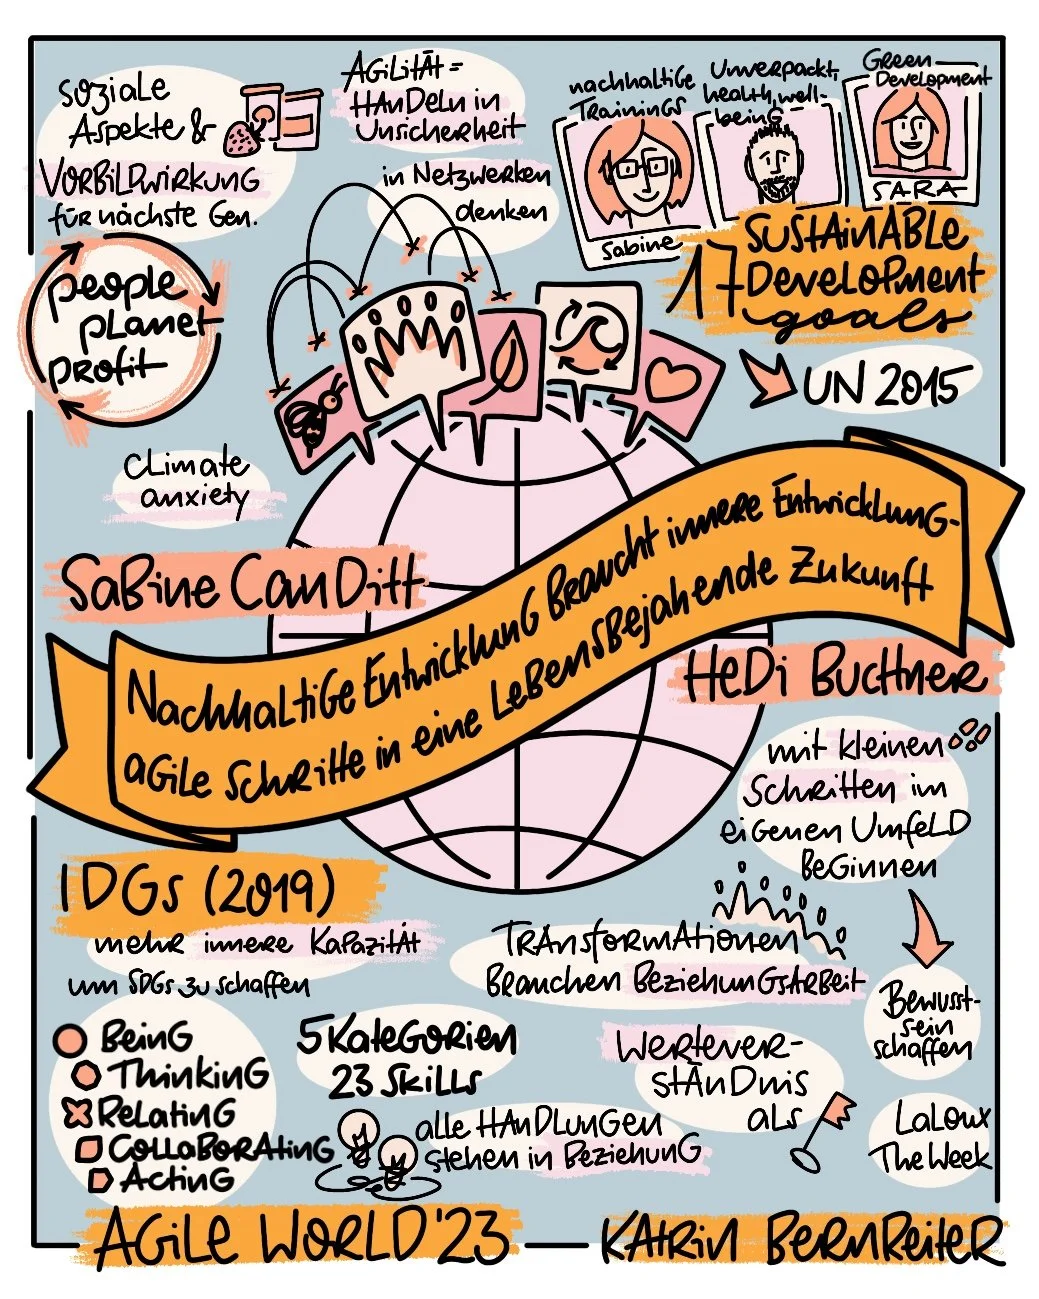 soziale
Aspekte &
Vorbildwirkung
für nächste Gen.
Agilität =
Handeln in
Unsicherheit
in Netzwerken
denken
nachhaltige
Trainings
Unverpackt,
health, well-
being
Green
Development
Sabine
SARA
17 Sustainable
Development
goals
UN 2015
people
planet
profit
Climate
anxiety
Sabine Canditt
Nachhaltige Entwicklung braucht innere Entwicklung-
agile Schritte in eine lebensbejahende Zukunft
Hedi Buchner
mit kleinen
Schritten im
eigenen Umfeld
beginnen
Bewusst-
sein
schaffen
Laloux
The Week
IDGs (2019)
mehr innere Kapazität
um SDGs zu schaffen
Being
Thinking
Relating
Collaborating
Acting
5 Kategorien
23 Skills
alle Handlungen
stehen in Beziehung
Transformationen
brauchen Beziehungsarbeit
Wertever-
ständnis
als
Agile World '23
Katrin Bernreiter